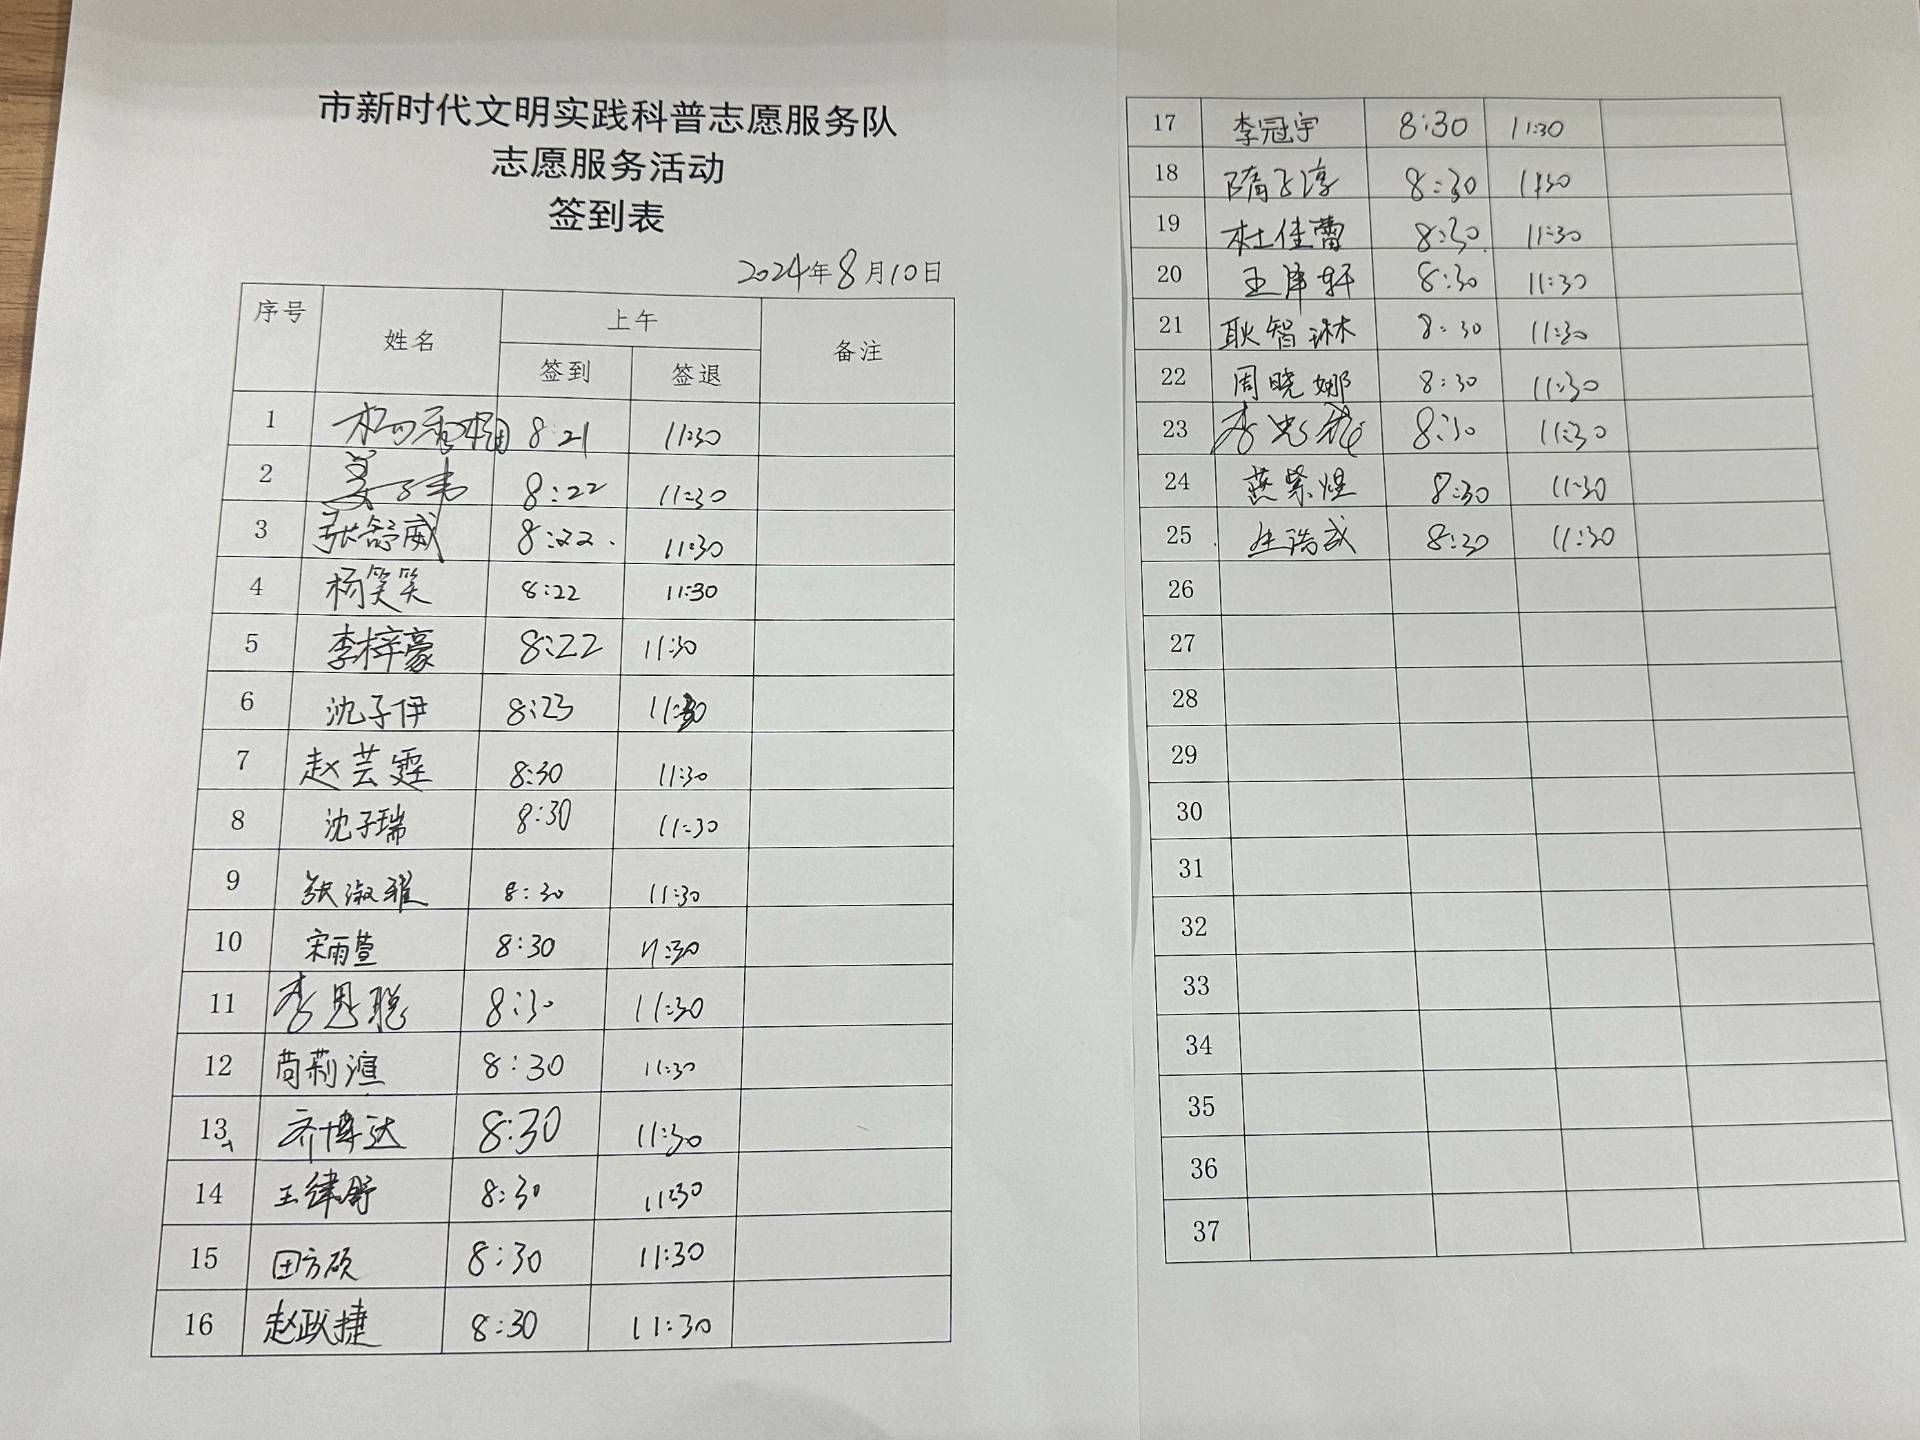 市新时代文明实践科普志愿服务队
志愿服务活动
签到表
2024年8月10日
序号 姓名 上午 备注
签到 签退
1 8:21 11:30
2 姜子韦 8:22 11:30
3 张舒威 8:22 11:30
4 杨笑笑 8:22 11:30
5 李梓豪 8:22 11:30
6 沈子伊 8:23 11:30
7 赵芸霆 8:30 11:30
8 沈子瑞 8:30 11:30
9 张淑雅 8:30 11:30
10 宋雨萱 8:30 11:30
11 李思聪 8:30 11:30
12 苘莉渲 8:30 11:30
13 齐博达 8:30 11:30
14 王律舒 8:30 11:30
15 田方硕 8:30 11:30
16 赵政捷 8:30 11:30
17 李冠宇 8:30 11:30
18 隋子淳 8:30 11:30
19 杜佳蕾 8:30 11:30
20 王岸轩 8:30 11:30
21 耿智琳 8:30 11:30
22 周晓娜 8:30 11:30
23 8:30 11:30
24 燕紫煜 8:30 11:30
25 浩武 8:30 11:30
26
27
28
29
30
31
32
33
34
35
36
37